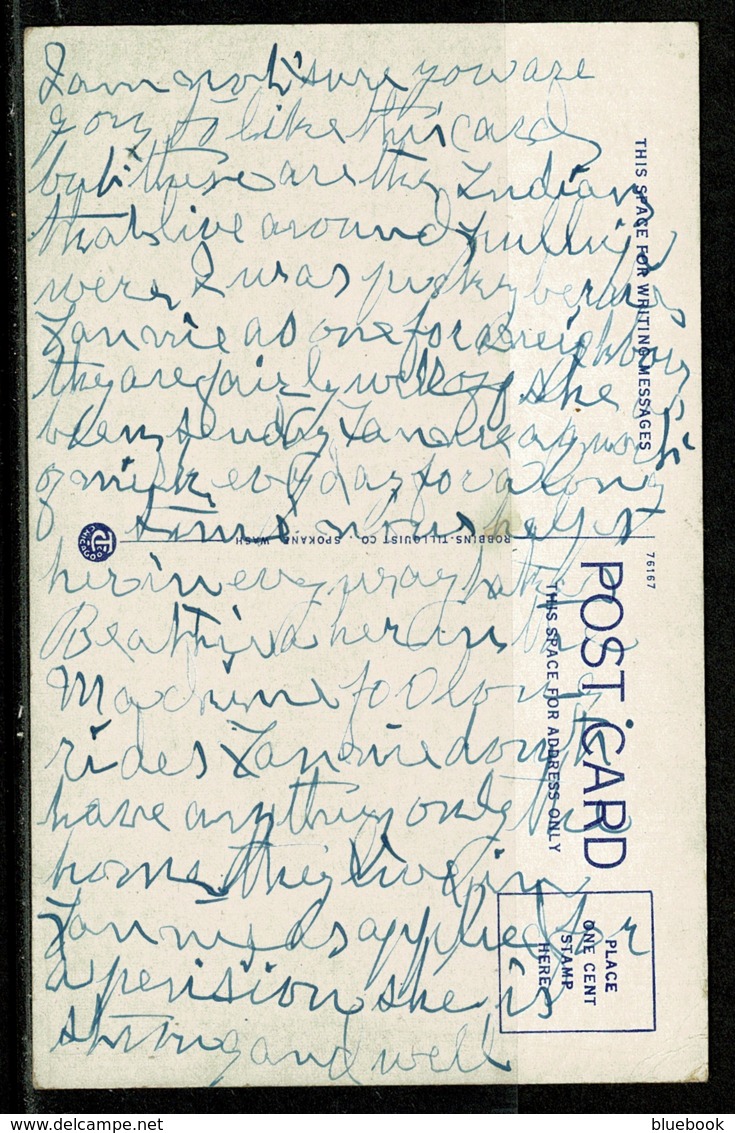 I am not sure you are
going to like this card
but these are the Indians
that live around
were I was picking berries
Fannie as one for a neighbour
they are fairly well off she
been sending Fannie a
of milk every day for a long
time now helps
her in every way take
Beattie & her in the
Machine for long
rides Fannie don't
have anything only the
home they live in
Fannie as applied for
a pension she is
strong and well
THIS SPACE FOR WRITING MESSAGES
ROBBINS-TILLQUIST CO., SPOKANE, WASH.
CTCO
CHICAGO
76167
POST CARD
THIS SPACE FOR ADDRESS ONLY
PLACE
ONE CENT
STAMP
HERE
bluebook